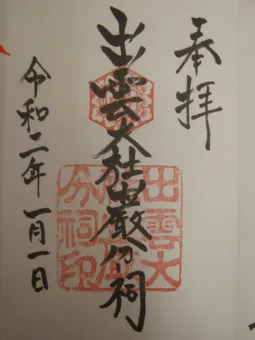 奉拝
出雲大社巌分祠
令和二年一月一日
出雲大
分祠印